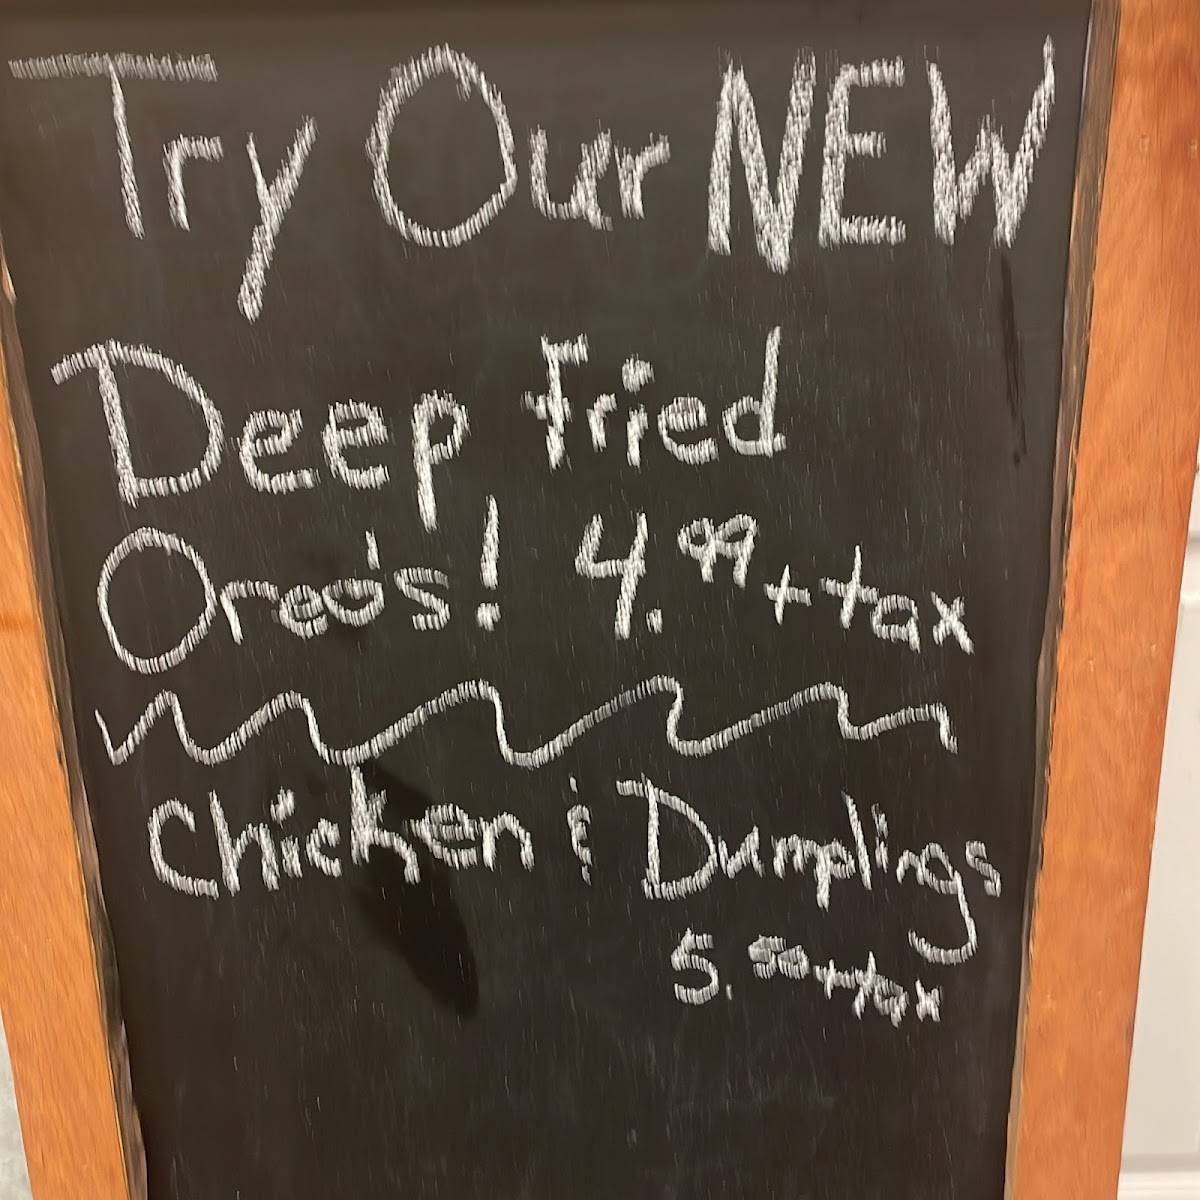 Try Our NEW
Deep Fried
Oreo's! 4.99 + tax
Chicken & Dumplings
5.00 + tax